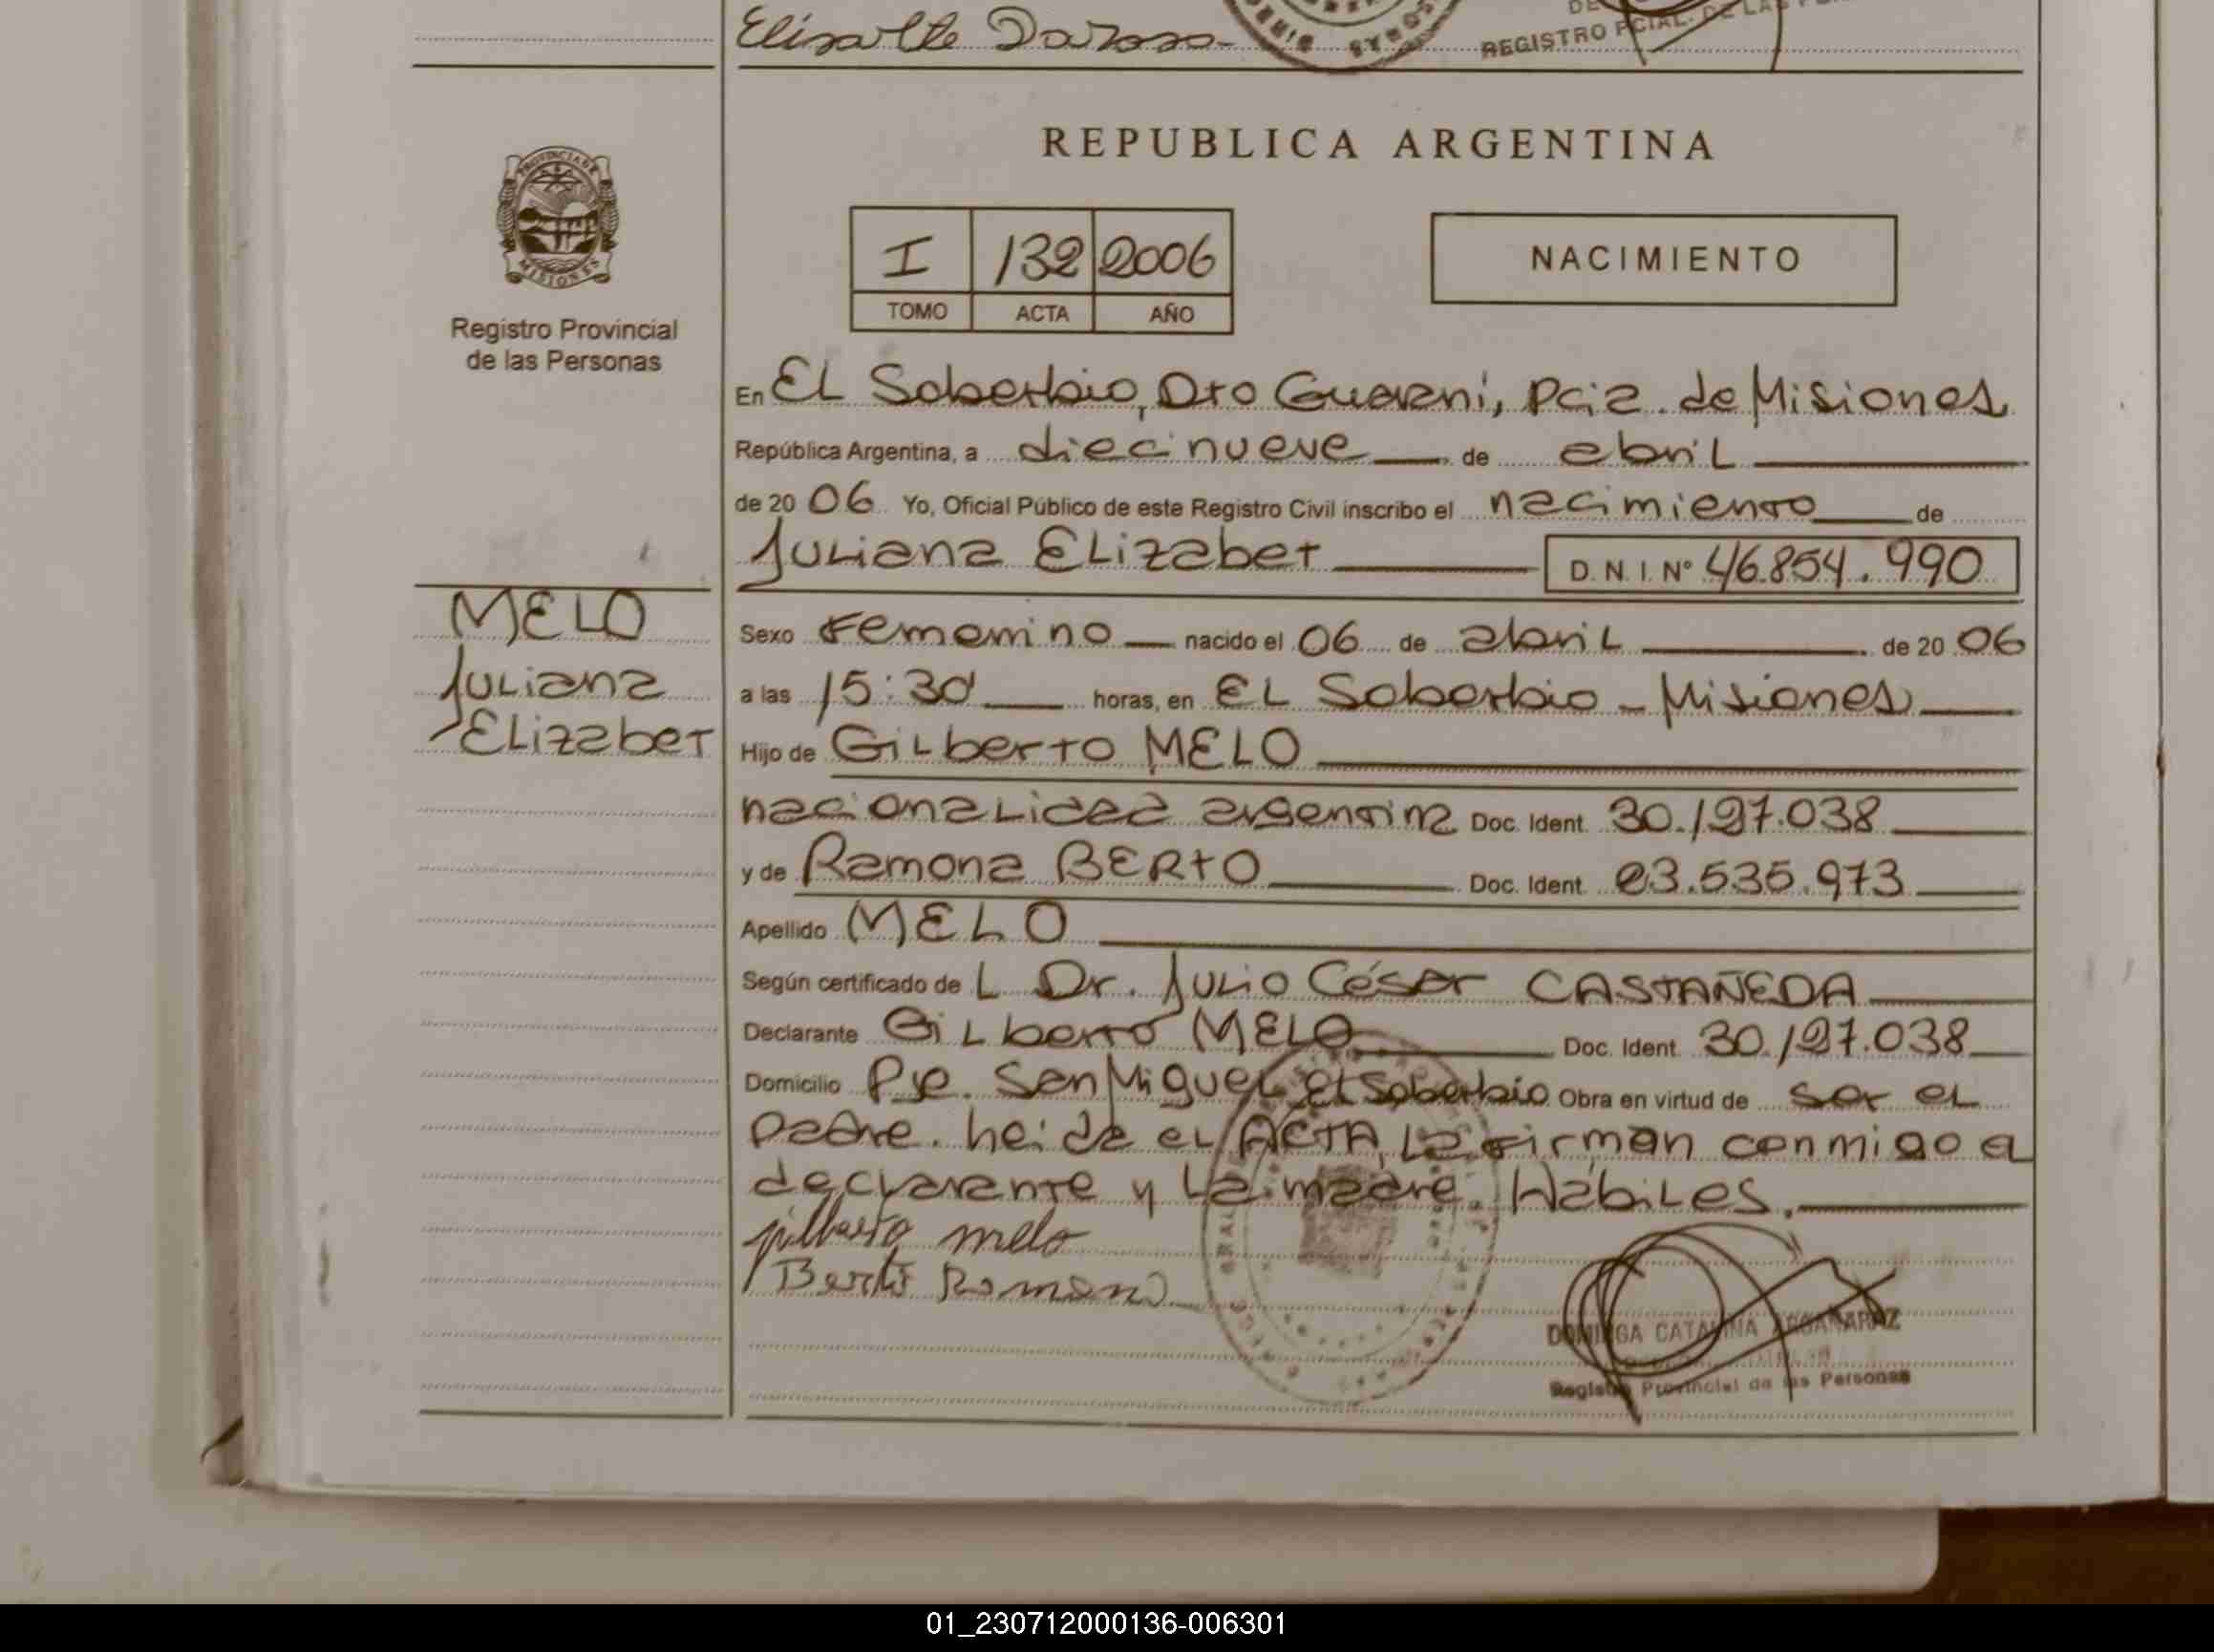 Elisalte Darosa
REGISTRO PCIAL. DE LAS
REPUBLICA ARGENTINA
PROVINCIA DE
MISIONES
Registro Provincial
de las Personas
I 132 2006
TOMO ACTA AÑO
NACIMIENTO
En EL Soberbio, Dto Guarani, Pcia. de Misiones
República Argentina, a diecinueve de abril
de 20 06 Yo, Oficial Público de este Registro Civil inscribo el nacimiento de
Juliana Elizabet D.N.I. Nº 46.854.990
MELO
Juliana
Elizabet
Sexo Femenino nacido el 06 de abril de 20 06
a las 15:30 horas, en EL Soberbio - Misiones
Hijo de Gilberto MELO
nacionalidad argentina Doc. Ident. 30.197.038
y de Ramona BERTO Doc. Ident. 23.535.973
Apellido MELO
Según certificado de L Dr. Julio César CASTAÑEDA
Declarante Gilberto MELO Doc. Ident. 30.197.038
Domicilio Pje. San Miguel El Soberbio Obra en virtud de ser el
padre. heida el ACTA, la firman conmigo el
declarante y la madre. Hábiles.
gilberto melo
Berto Romana
DOMINGA CATALINA ARGAÑARAZ
Registro Provincial de las Personas
01_230712000136-006301